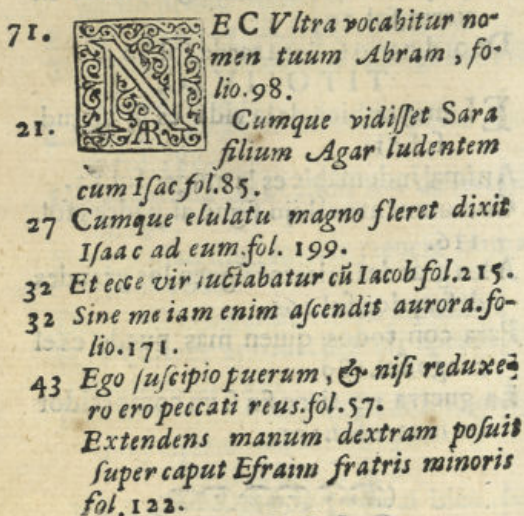 71. NEC Vltra vocabitur no-
men tuum Abram, fo-
lio.98.
21. Cumque vidiſſet Sara
filium Agar ludentem
cum Iſac fol.85.
27 Cumque elulatu magno fleret dixit
Iſaac ad eum.fol. 199.
32 Et ecce vir luctabatur cũ Iacob fol.215.
32 Sine me iam enim aſcendit aurora.fo-
lio.171.
43 Ego ſuſcipio puerum, & niſi reduxe-
ro ero peccati reus.fol.57.
Extendens manum dextram poſuit
ſuper caput Efraim fratris minoris
fol.122.